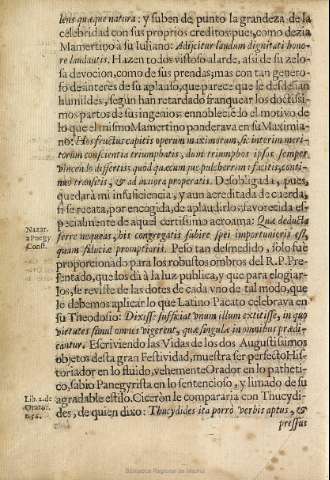 lens quæque natura: y suben de punto la grandeza de la
celebridad con sus proprios creditos: pues, como dezia
Mamertino à su Iuliano: Adijcitur laudum dignitati hono-
re laudantis. Hazen todos vistoso alarde, assi de su zelo-
sa devocion, como de sus prendas; mas con tan genero-
so desinterès de su aplauso, que parece que le desdeñan
humildes, segun han retardado franquear los doctissi-
mos partos de sus ingenios: ennobleciẽdo el motivo de
lo que el mismo Mamertino ponderava en su Maximia-
no: Hos fructus capitis operum
conscientia triumphatis, dont triumphos ipsos semper
vincendo differtis quod quæcum que pulcherrimè facitis, conti-
nuo transitis, & ad maiora properatis. Desobligada, pues,
quedarà mi insuficiencia, y aun acreditada de cuerda,
si se recata, por encogida, de aplaudirlo; favorecida es-
pecialmente de aquel certissimo acroama: Quæ deducta
ferre nequeas, his congregatis subire spei importunioris est,
quam fiduciæ promptioris. Peso tan desmedido, solo fue
proporcionado para los robustos ombros del R. P. Pre-
sentado, que los dà à la luz publica, y que para elogiar-
los, se reviste de las dotes de cada vno de tal modo, que
le debemos aplicar lo que Latino Pacato celebrava en
su Theodosio: Dixisse sufficiat vnum illum extitisse, in quo
virtutes simul omnes vigerent, quæ singulæ in omnibus prædi-
cantur. Escriviendo las Vidas de los dos Augustissimos
objetos desta gran Festividad, muestra ser perfecto His-
toriador en lo fluido, vehemente Orador en lo patheti-
co, sabio Panegyrista en lo sentencioso, y limado de su
agradable estilo. Ciceròn le compararia con Thucydi-
des, de quien dixo: Thucydides ita porrò verbis aptus, &
pressus
Nazar.
Panegy.
Const.
Lib. 2. de
Orator.
Biblioteca Regional de Madrid